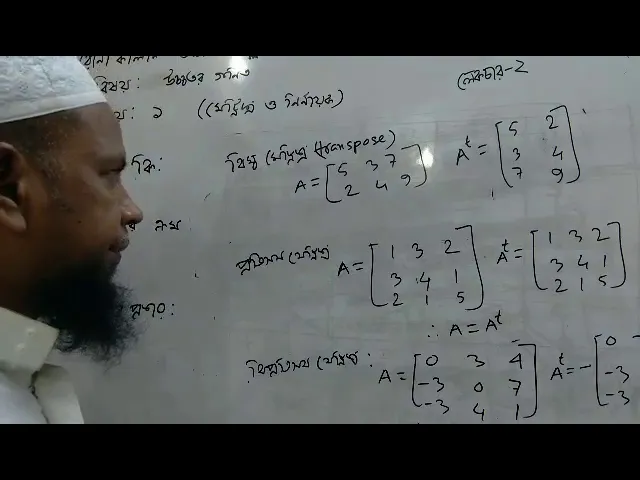 বিষয়: উচ্চতর গনিত
লেকচার-2
: ১ (মেট্রিক্স ও নির্নায়ক)
বিম্ব মেট্রিক্স (transpose)
A = [5 3 7
2 4 9]
Aᵗ = [5 2
3 4
7 9]
প্রতিসম মেট্রিক্স
A = [1 3 2
3 4 1
2 1 5]
Aᵗ = [1 3 2
3 4 1
2 1 5]
∴ A = Aᵗ
বিপ্রতিসম মেট্রিক্স :
A = [0 3 4
-3 0 7
-3 4 1]
Aᵗ = - [0
-3
-3